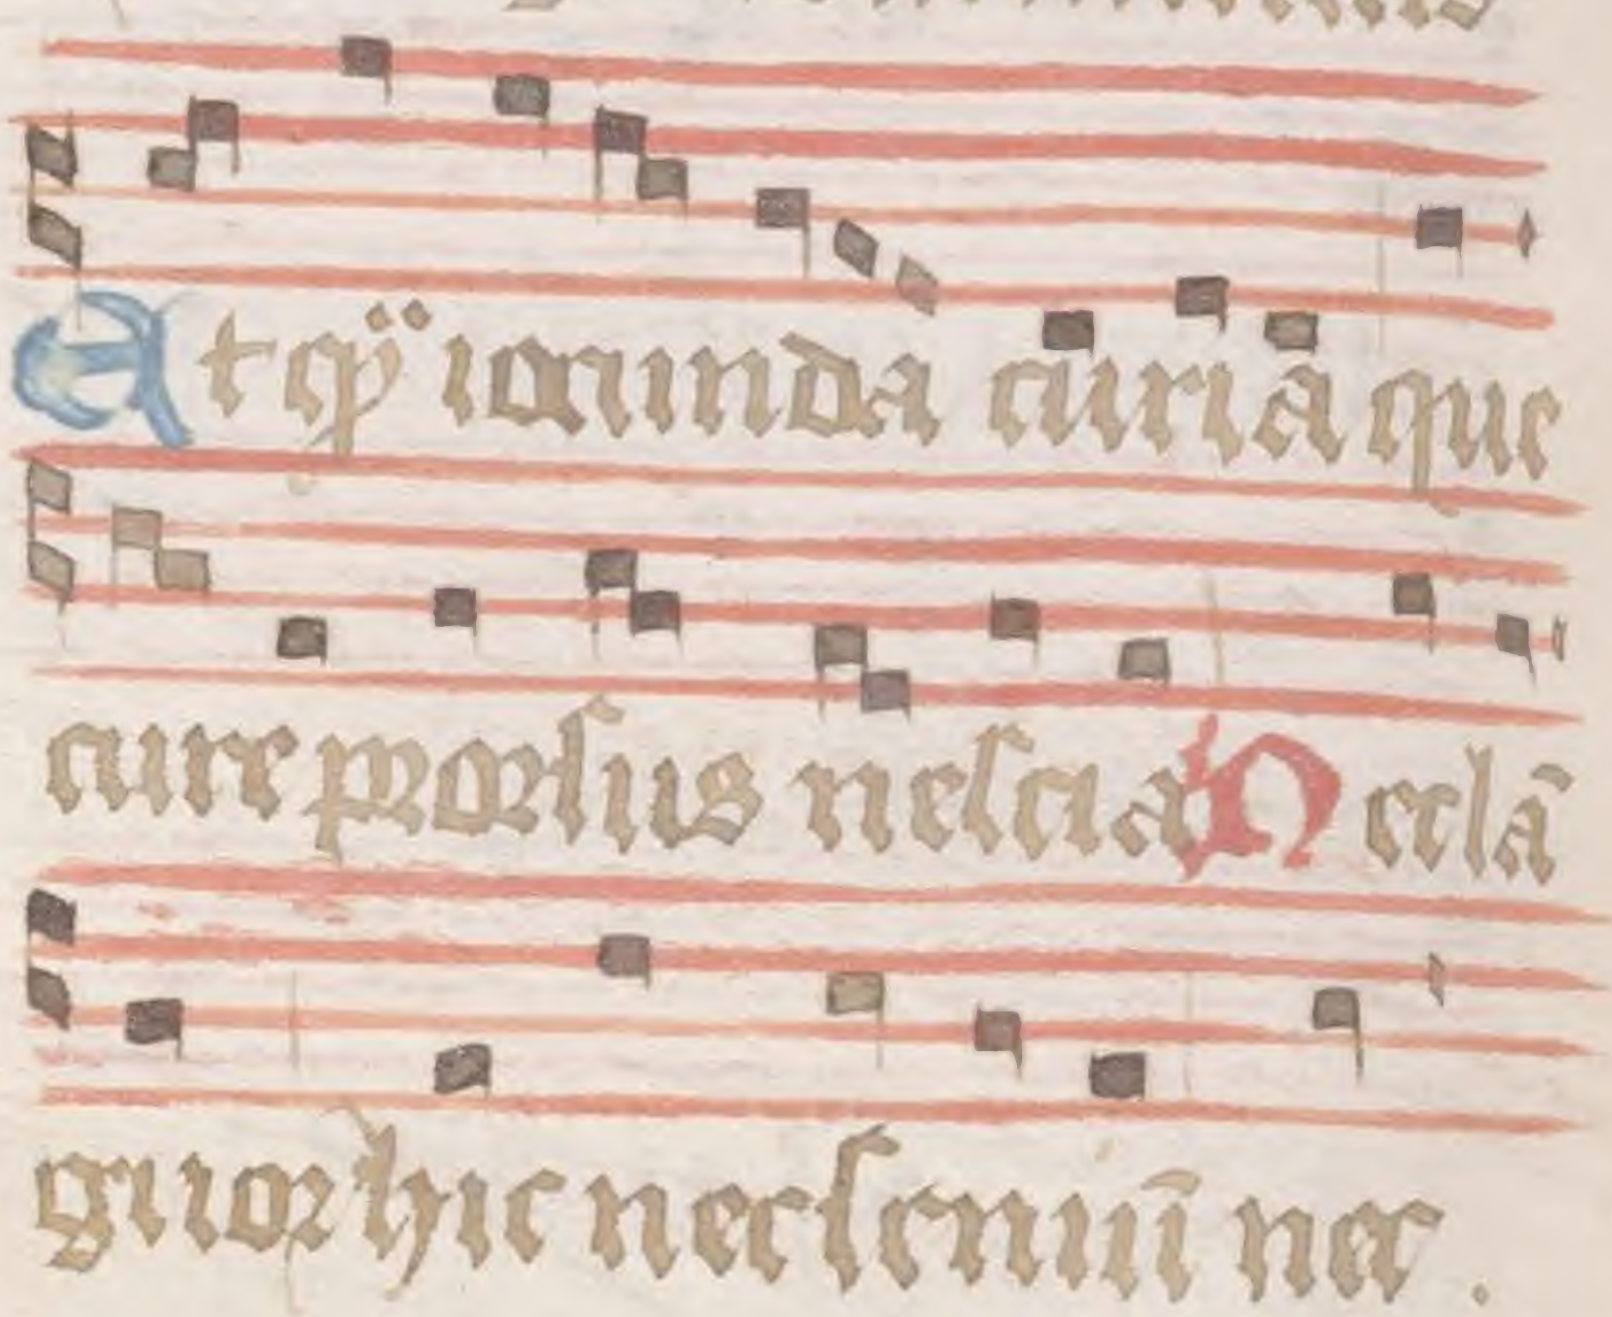 At qͥ iocunda curiā que
cure prorsus nesciā Nec lā
guor hic nec seniuī nec.